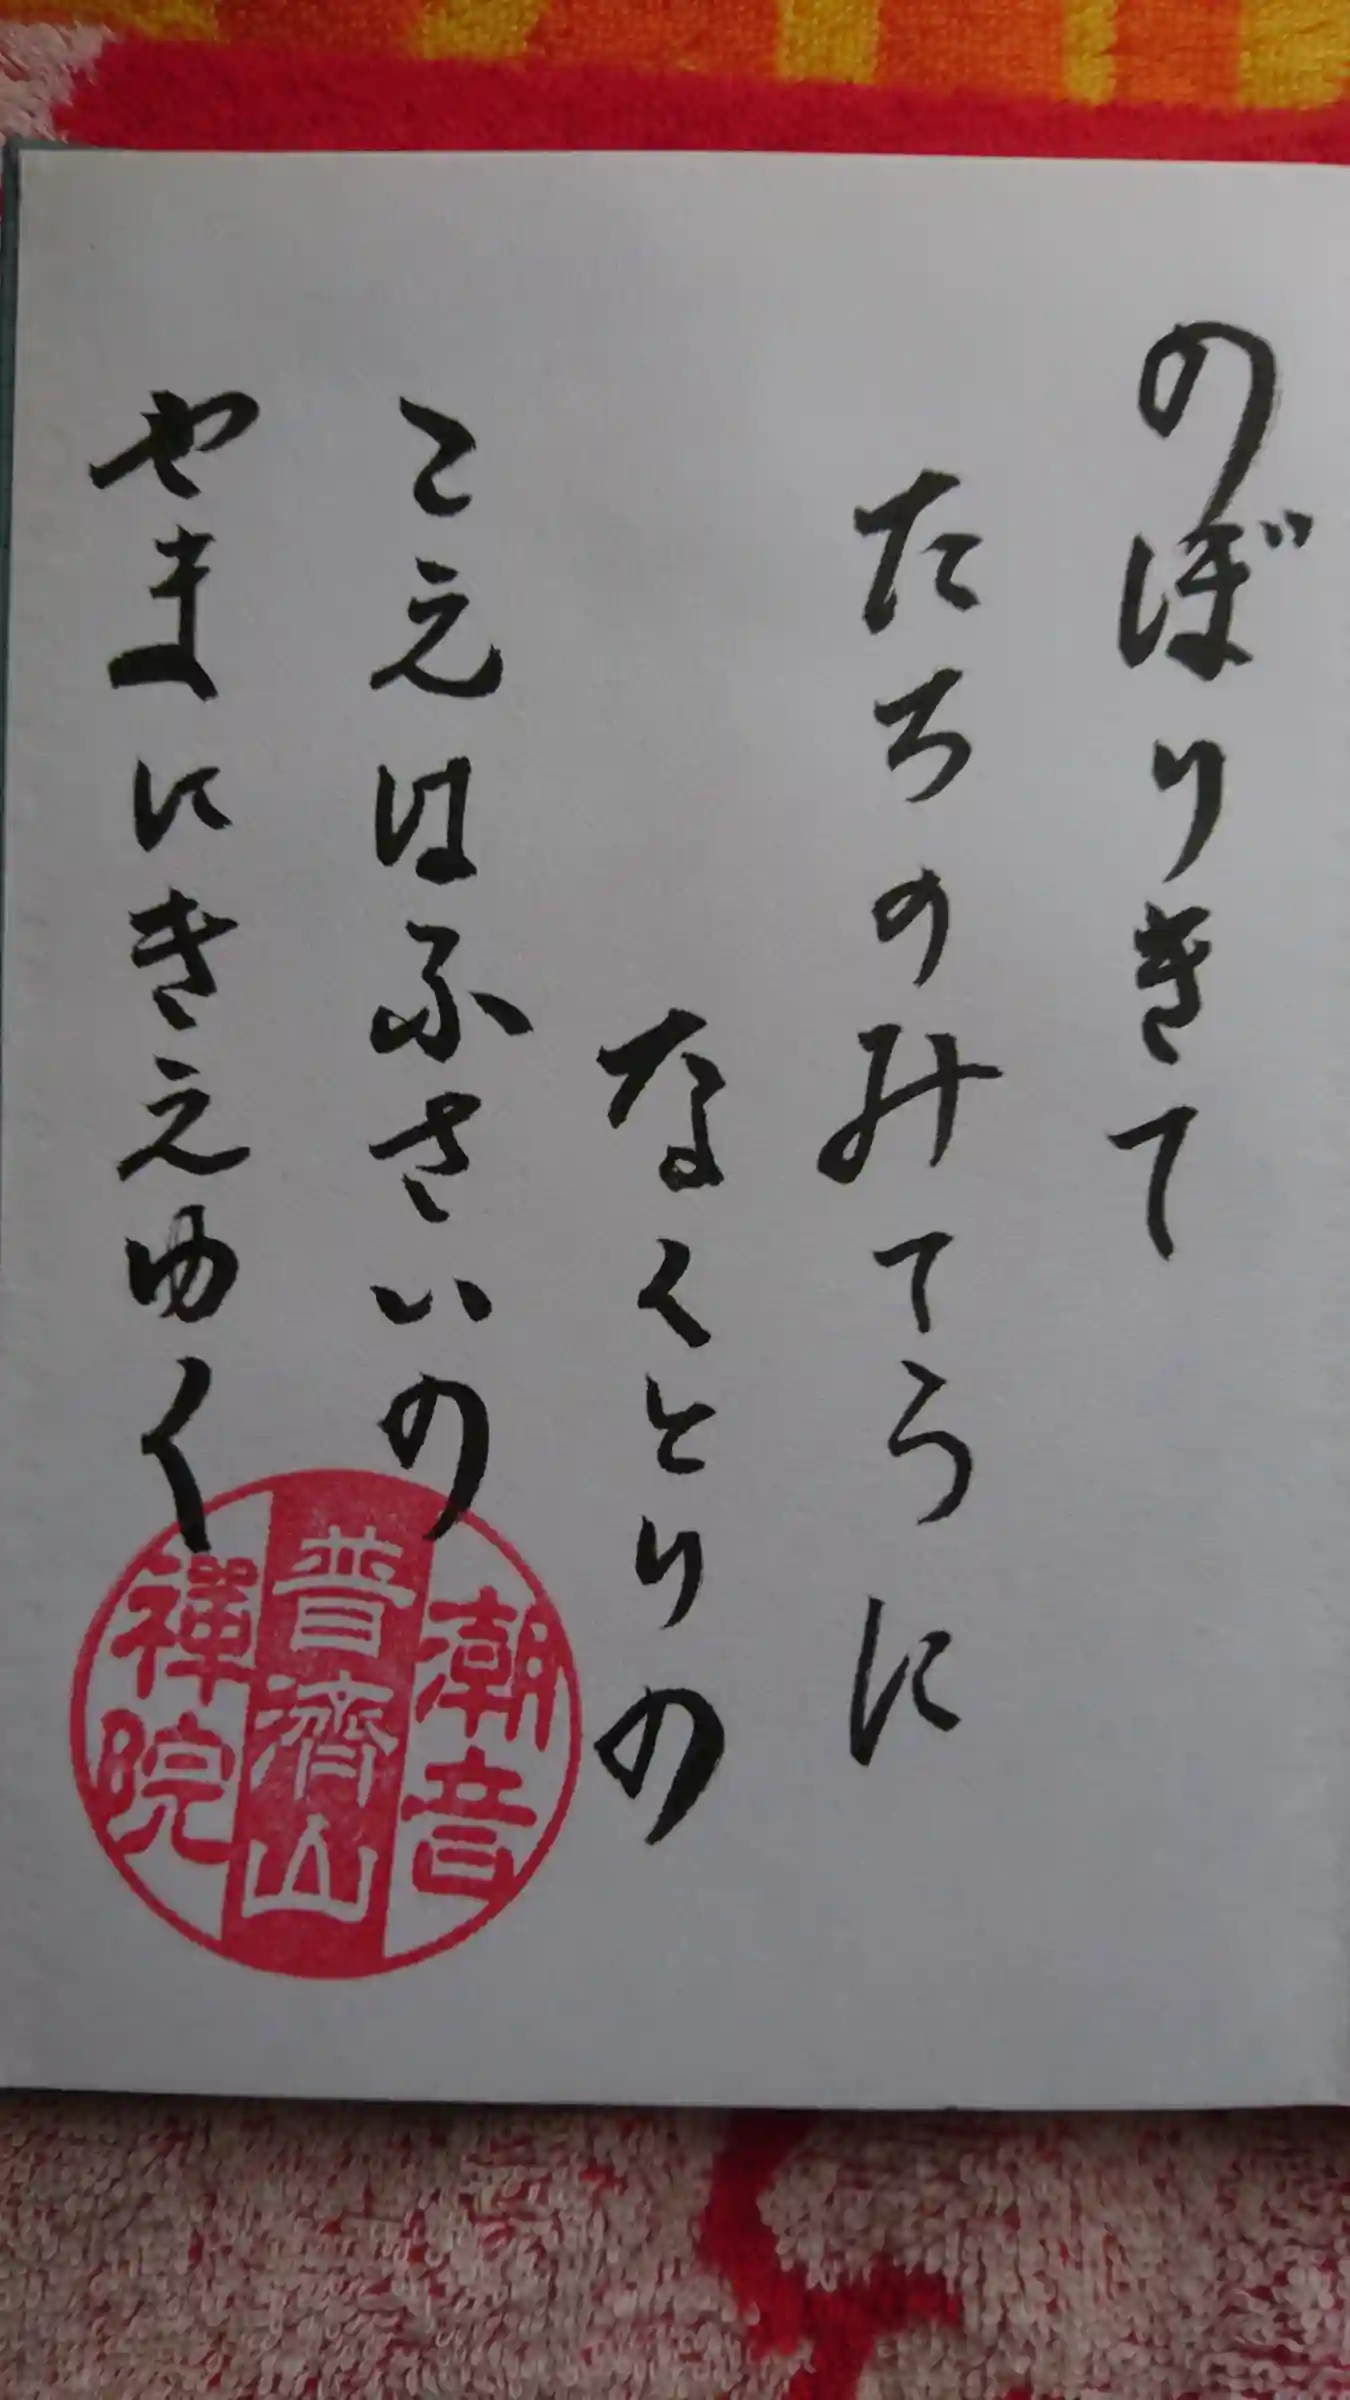 のぼりきて
たちのみてらに
なくとりの
こえはふさいの
やまにきえゆく
潮音
普濟山
禅院